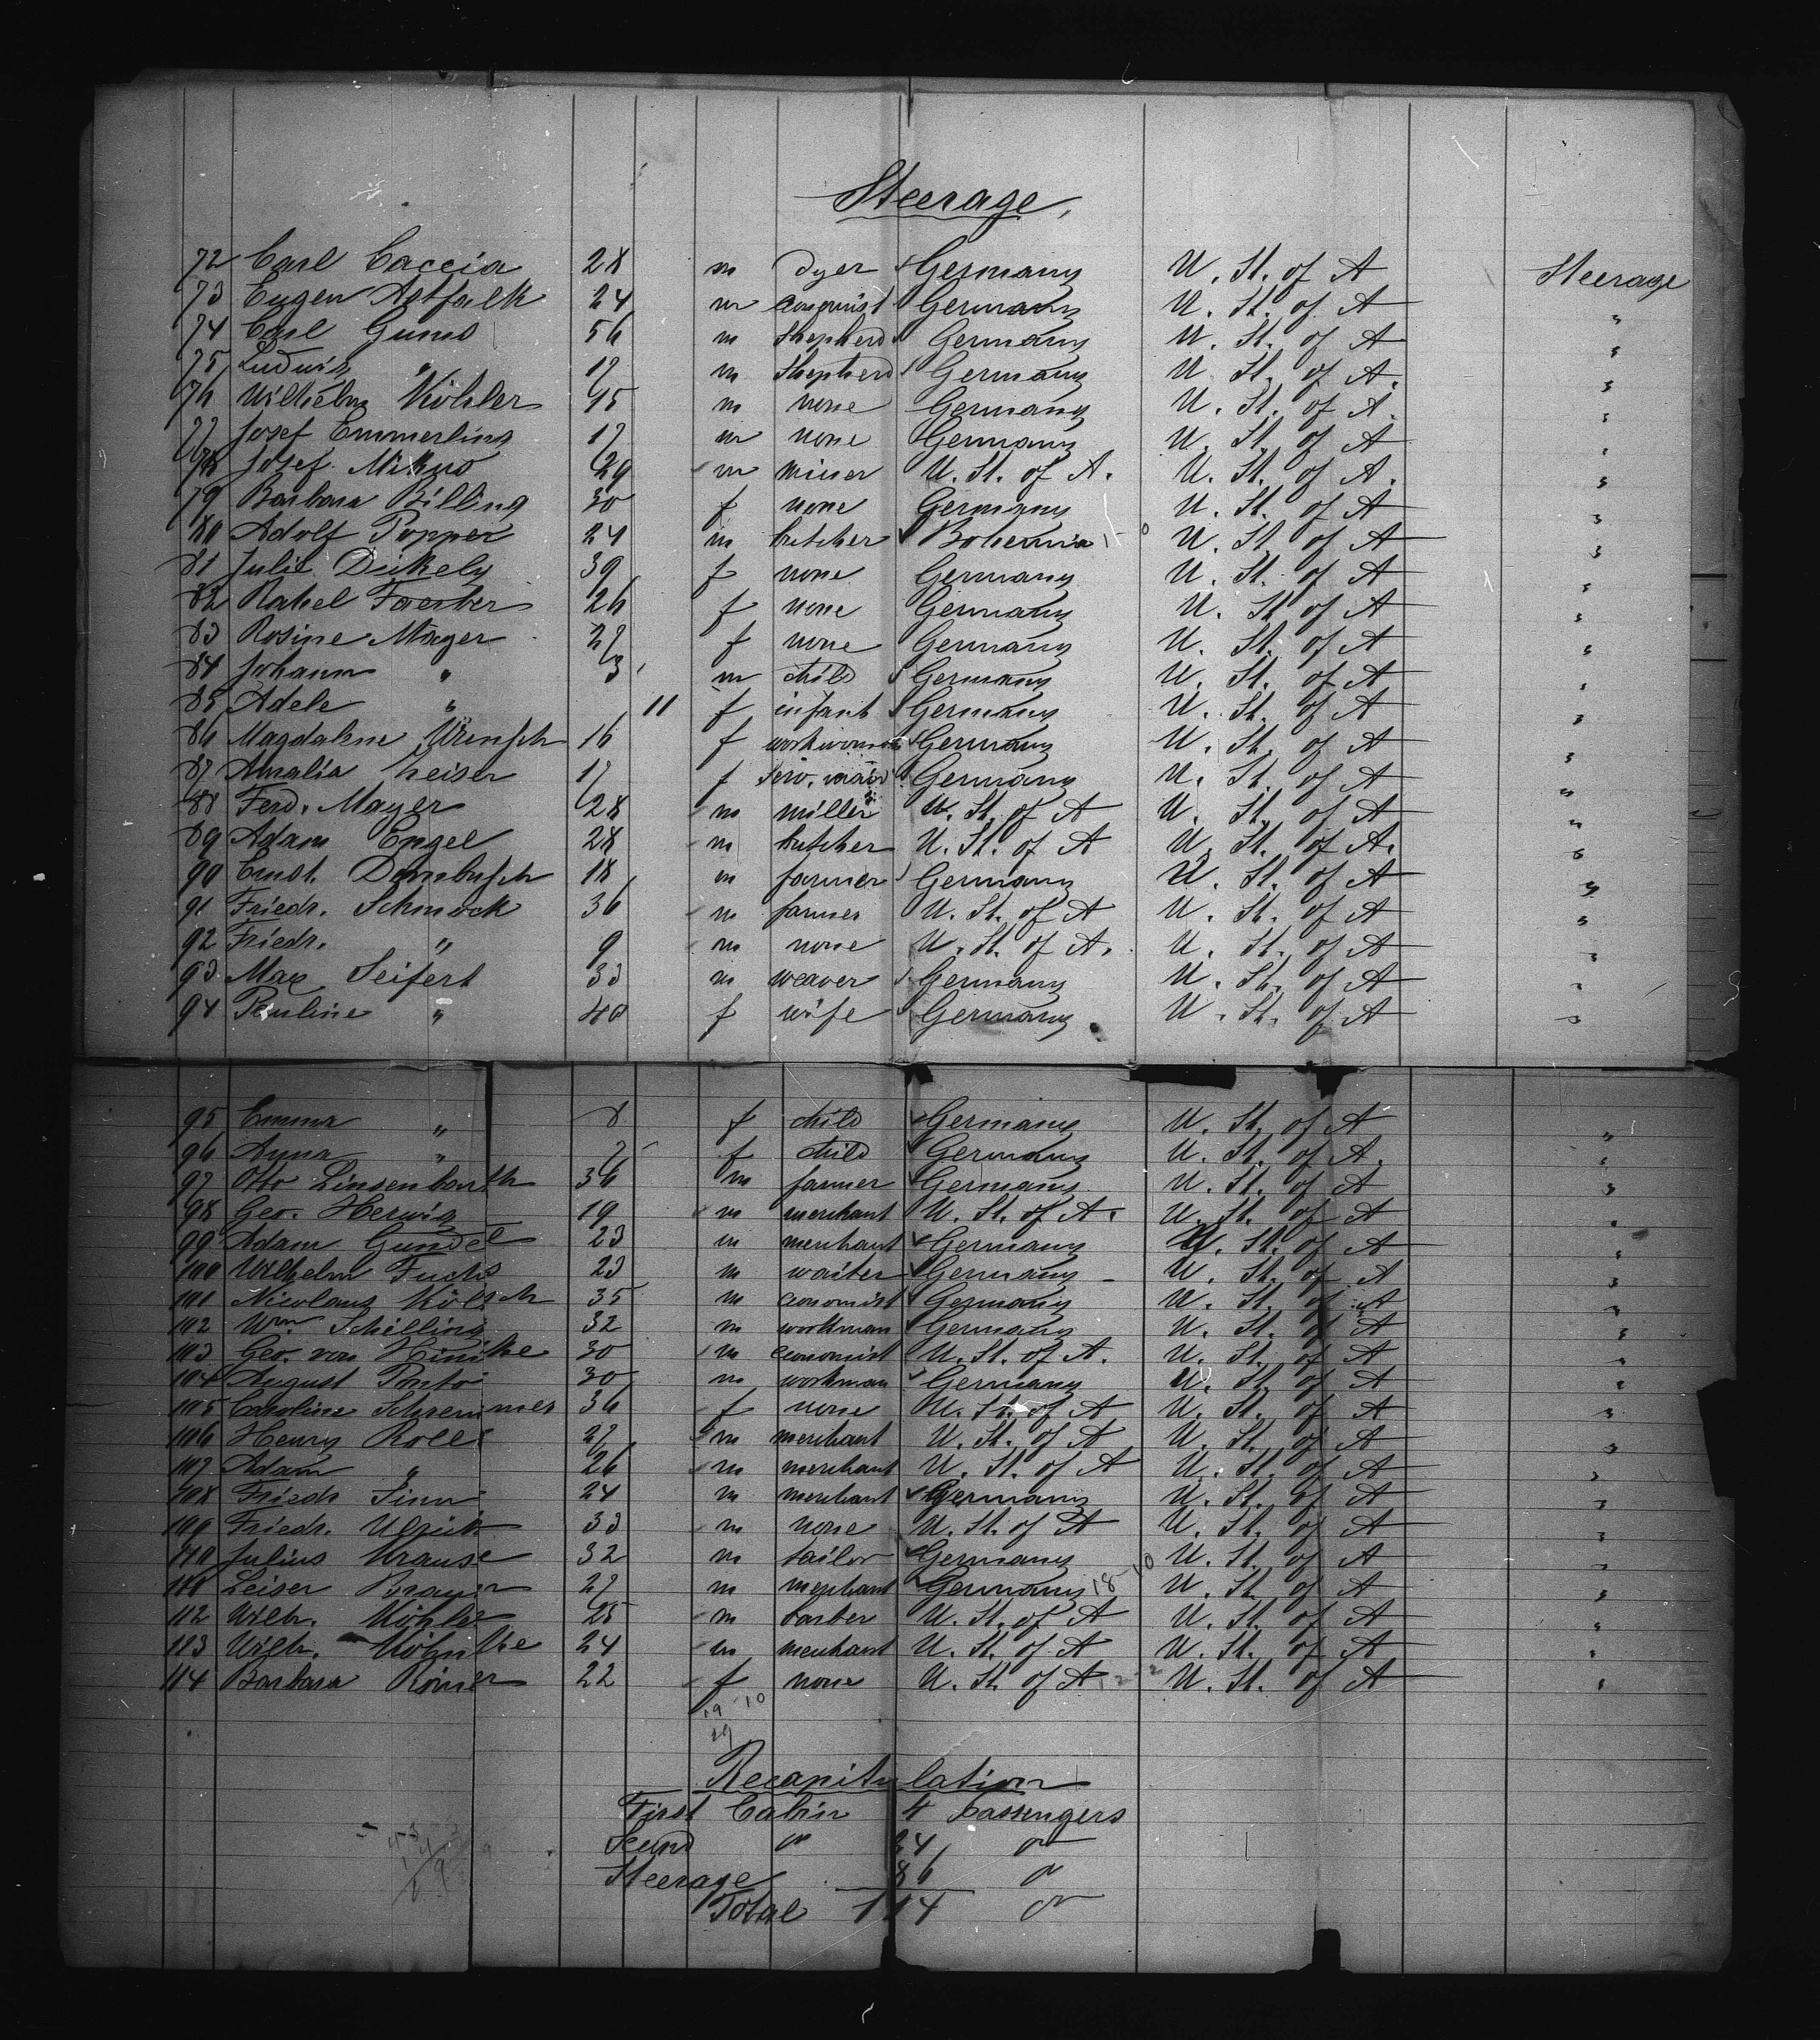 Steerage,
72 Carl Caccia 28 m dyer Germany U. St. of A Steerage
73 Eugen Astfalk 24 m Germany U. St. of A "
74 Carl Gums 56 m Shepherd Germany U. St. of A "
75 Ludwig " 17 m Shepherd Germany U. St. of A. "
76 Wilhelm Köhler 45 m none Germany U. St. of A. "
77 Josef Emmerling 17 m none Germany U. St. of A "
78 Josef Mikus 29 m miner U. St. of A. U. St. of A. "
79 Barbara Billing 30 f none Germany U. St. of A "
80 Adolf Popper 24 m butcher Bohemia U. St. of A "
81 Julie Dickely 39 f none Germany U. St. of A "
82 Rahel Faerber 26 f none Germany U. St. of A "
83 Rosine Mayer 27 f none Germany U. St. of A "
84 Johann " 3 m child Germany U. St. of A "
85 Adele " 11 f infant Germany U. St. of A "
86 Magdalene 16 f workwoman Germany U. St. of A "
87 Amalia Zeiser 17 f serv. maid Germany U. St. of A "
88 Ferd. Mayer 28 m miller U. St. of A U. St. of A "
89 Adam Engel 28 m butcher U. St. of A U. St. of A. "
90 Ernst Dornbusch 18 m farmer Germany U. St. of A "
91 Friedr. Schmock 36 m farmer U. St. of A U. St. of A "
92 Friedr. " 9 m none U. St. of A. U. St. of A "
93 Max Seifert 33 m weaver Germany U. St. of A "
94 Pauline " 40 f wife Germany U. St. of A "
95 Emma " 8 f child Germany U. St. of A "
96 Anna " 7 f child Germany U. St. of A. "
97 Otto Linsenbarth 36 m farmer Germany U. St. of A "
98 Geo. Herwig 19 m merchant U. St. of A. U. St. of A "
99 Adam Gundel 23 m merchant Germany U. St. of A "
100 Wilhelm Fuchs 23 m waiter Germany U. St. of A "
101 Nicolaus Kölsch 35 m economist Germany U. St. of A "
102 Wm. Schilling 32 m workman Germany U. St. of A "
103 Geo. von 30 m economist U. St. of A. U. St. of A "
104 August Ponto 30 m workman Germany U. St. of A "
105 Caroline Schremmer 36 f none U. St. of A U. St. of A "
106 Henry Roll 27 m merchant U. St. of A U. St. of A "
107 Adam " 26 m merchant U. St. of A U. St. of A "
108 Friedr 24 m merchant Germany U. St. of A "
109 Friedr. Ulrich 33 m none U. St. of A U. St. of A "
110 Julius Krause 32 m tailor Germany U. St. of A "
111 Leiser 27 m merchant Germany 18 10 U. St. of A "
112 Wilh. Köhler 25 m barber U. St. of A U. St. of A "
113 Wilh. Köhnke 24 m merchant U. St. of A U. St. of A "
114 Barbara Römer 22 f none U. St. of A U. St. of A "
19 10
29
Recapitulation
First Cabin 4 passengers
Second " 24 "
Steerage 86 "
Total 114 "